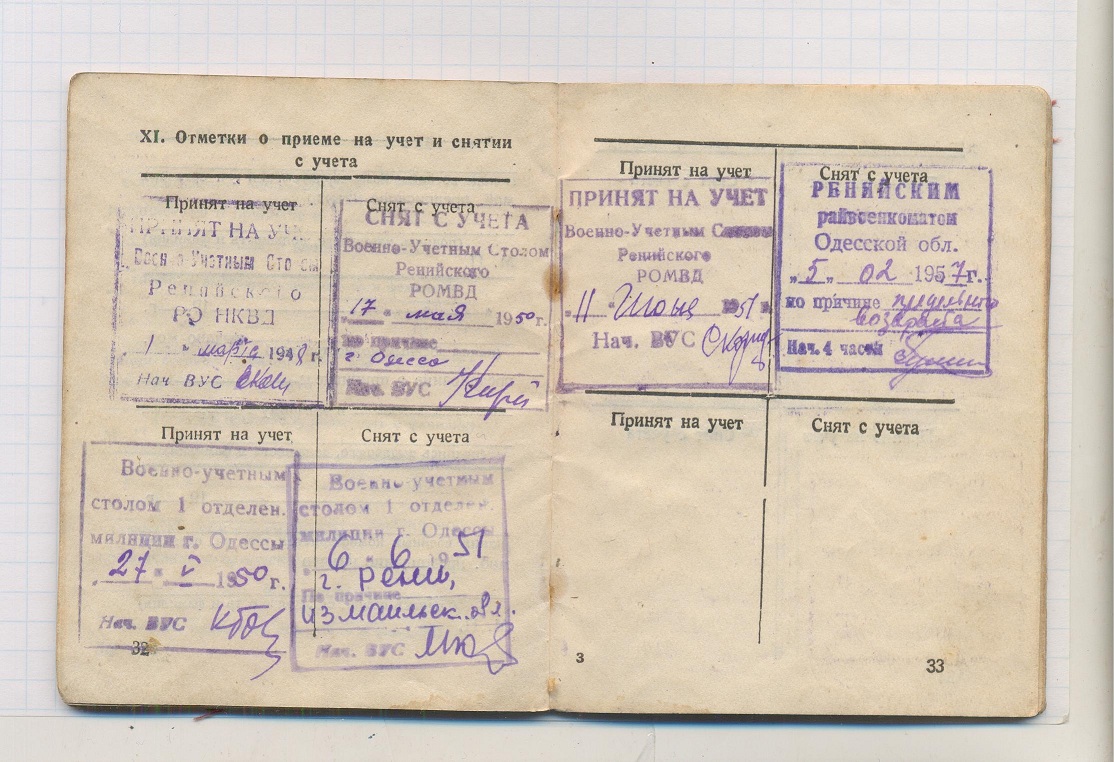 XI. Отметки о приеме на учет и снятии
с учета
Принят на учет
ПРИНЯТ НА УЧ
Военно-Учетным Столом
Ренийского
РО НКВД
„ 1 " марта 1948 г.
Нач ВУС
Снят с учета
СНЯТ С УЧЕТА
Военно-Учетным Столом
Ренийского
РОМВД
17 " мая 1950 г.
по причине
г. Одесса
Нач. ВУС
Принят на учет
Военно-учетным
столом 1 отделен.
милиции г. Одессы
„ 27 " V 1950 г.
Нач. ВУС
32
Снят с учета
Военно-учетным
столом 1 отделен.
милиции г. Одессы
„ 6 " 6 19 51
г. Рени,
По причине
Измаильск. обл.
Нач. ВУС
Принят на учет
ПРИНЯТ НА УЧЕТ
Военно-Учетным Столом
Ренийского
РОМВД
„ 11 " Июня 1951 г.
Нач. ВУС
Снят с учета
РЕНИЙСКИМ
райвоенкоматом
Одесской обл.
„ 5 „ 02 1957 г.
по причине предельного
возраста
Нач. 4 части
Принят на учет
Снят с учета
3
33